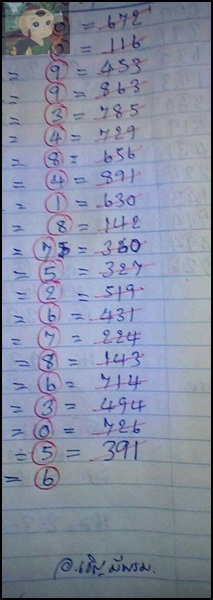 0 = 672
0 = 116
= 9 = 453
= 9 = 863
= 3 = 785
= 4 = 729
= 8 = 656
= 4 = 891
= 1 = 630
= 8 = 142
= 75 = 360
= 5 = 327
= 2 = 519
= 6 = 431
= 7 = 224
= 8 = 143
= 6 = 714
= 3 = 494
= 0 = 726
= 5 = 391
= 6